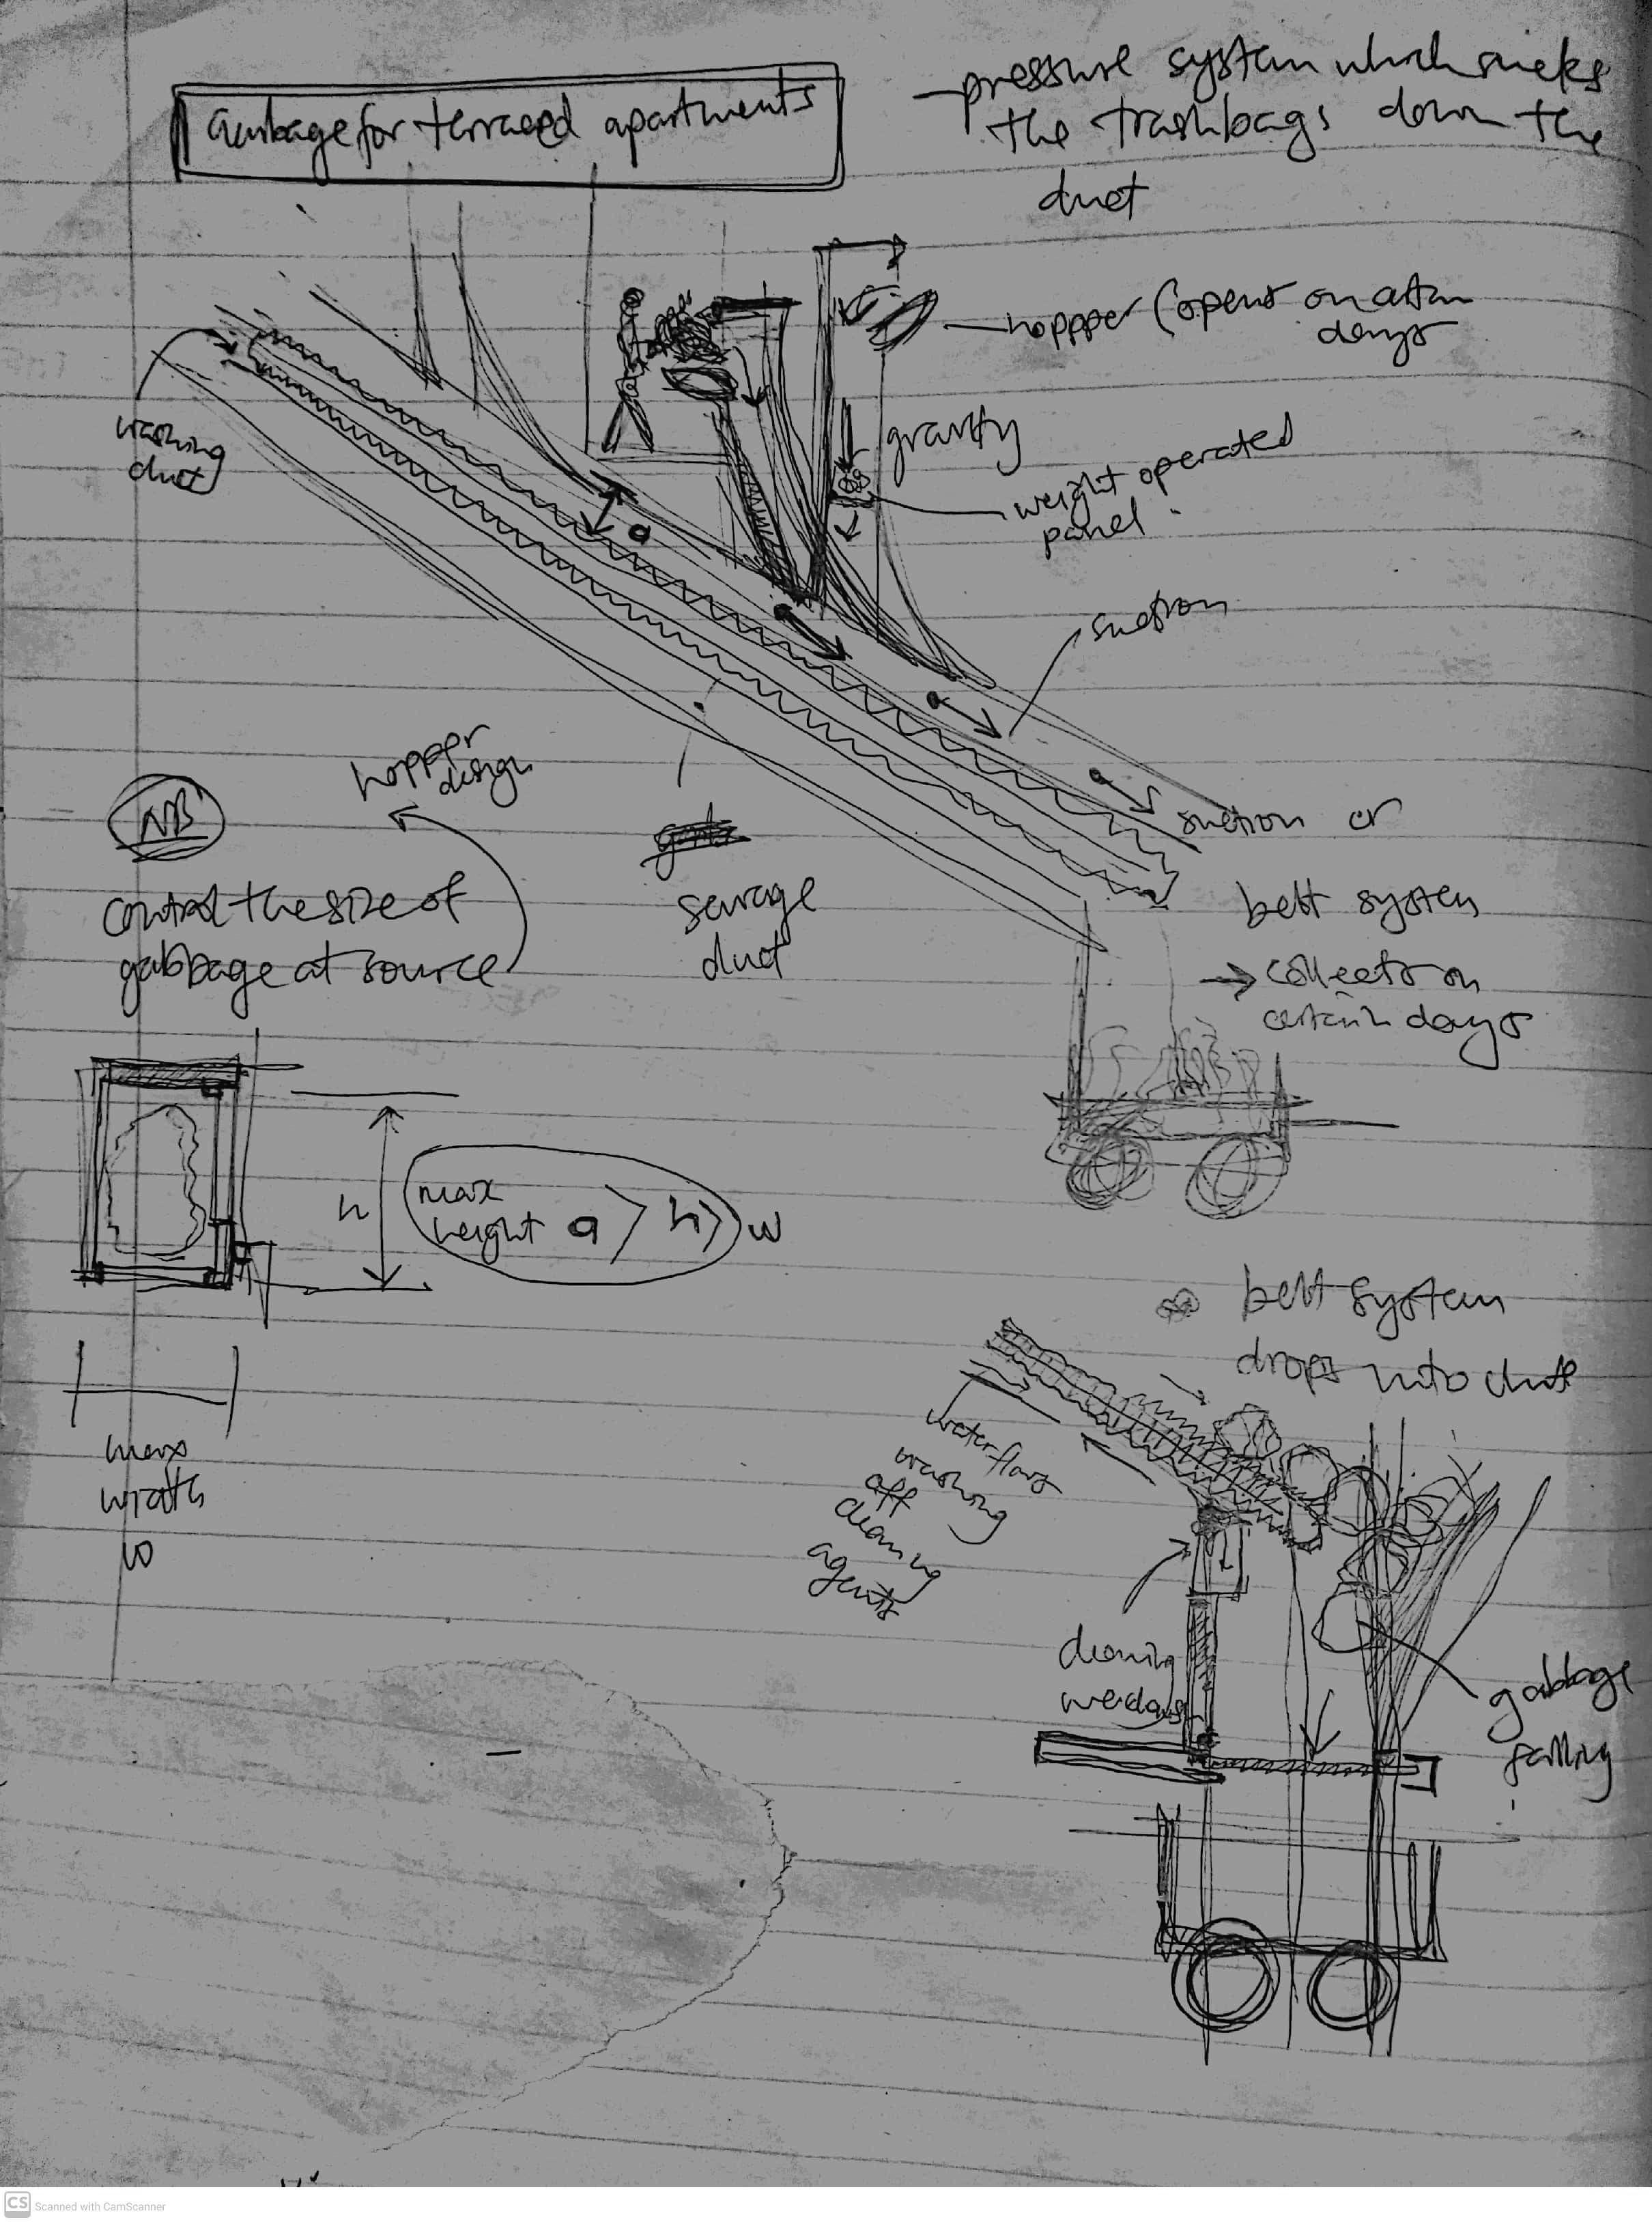 Garbage for terraced apartments
- pressure system which sucks
the trashbags down the
duct
hoppper (opens on certain
days
gravity
weight operated
panel
washing
duct
a
suction
hoppper
design
NB
control the size of
gabbage at source
sewage
duct
suction or
belt system
→ collects on
certain days
h
max
height a > h > w
max
width
w
belt system
drops into chute
water flows
washing
off
cleaning
agents
cleaning
gabbage
falling
CS Scanned with CamScanner